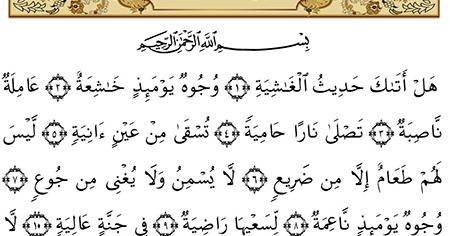 بِسْمِ اللَّهِ الرَّحْمَٰنِ الرَّحِيمِ
هَلْ أَتَىٰكَ حَدِيثُ ٱلْغَٰشِيَةِ ﴿١﴾ وُجُوهٌ يَوْمَئِذٍ خَٰشِعَةٌ ﴿٢﴾ عَامِلَةٌ
نَّاصِبَةٌ ﴿٣﴾ تَصْلَىٰ نَارًا حَامِيَةً ﴿٤﴾ تُسْقَىٰ مِنْ عَيْنٍ ءَانِيَةٍ ﴿٥﴾ لَّيْسَ
لَهُمْ طَعَامٌ إِلَّا مِن ضَرِيعٍ ﴿٦﴾ لَّا يُسْمِنُ وَلَا يُغْنِى مِن جُوعٍ ﴿٧﴾
وُجُوهٌ يَوْمَئِذٍ نَّاعِمَةٌ ﴿٨﴾ لِّسَعْيِهَا رَاضِيَةٌ ﴿٩﴾ فِى جَنَّةٍ عَالِيَةٍ ﴿١٠﴾ لَّا